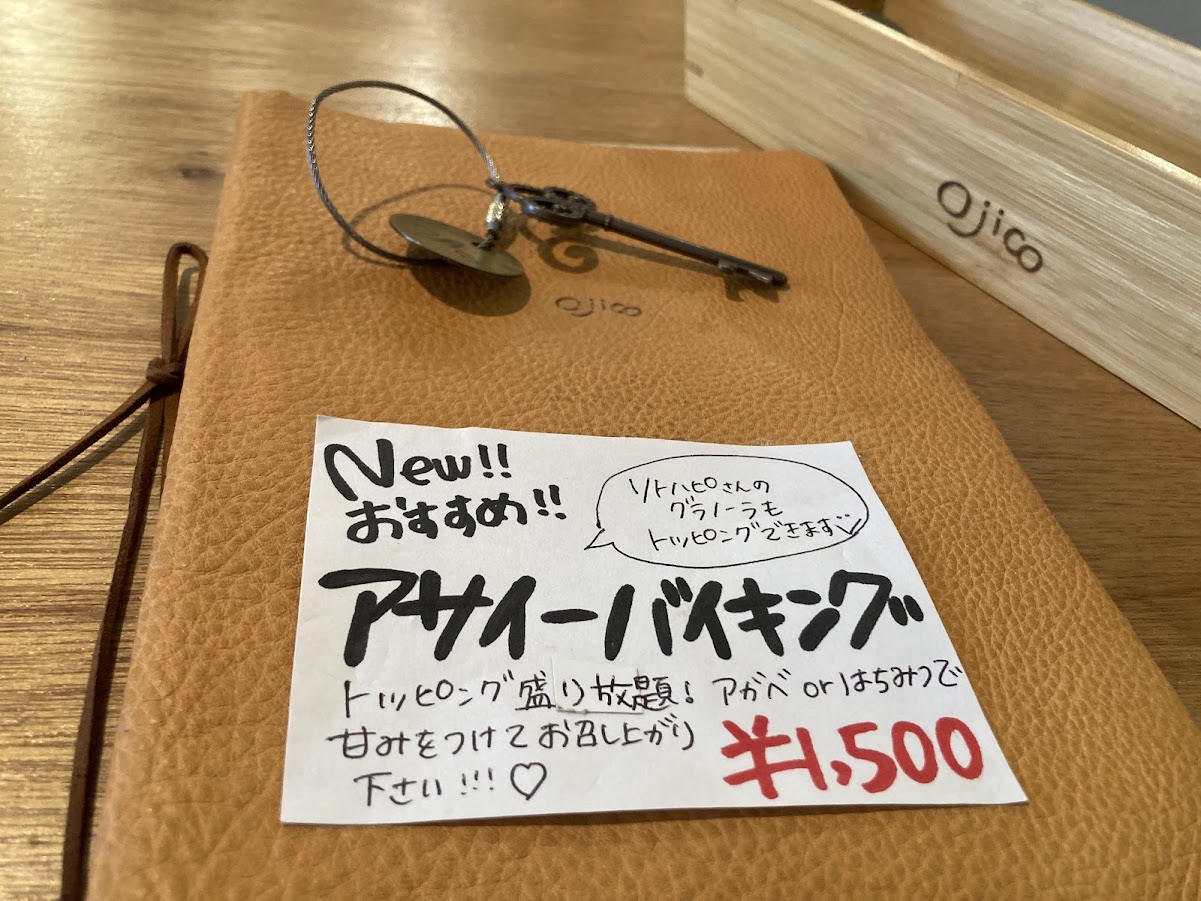 ojico
ojico
New!!
おすすめ!!
リトハピさんの
グラノーラも
トッピングできます♡
アサイーバイキング
トッピング盛り放題! アガベorはちみつで
甘みをつけてお召し上がり
下さい!!!♡
¥1,500